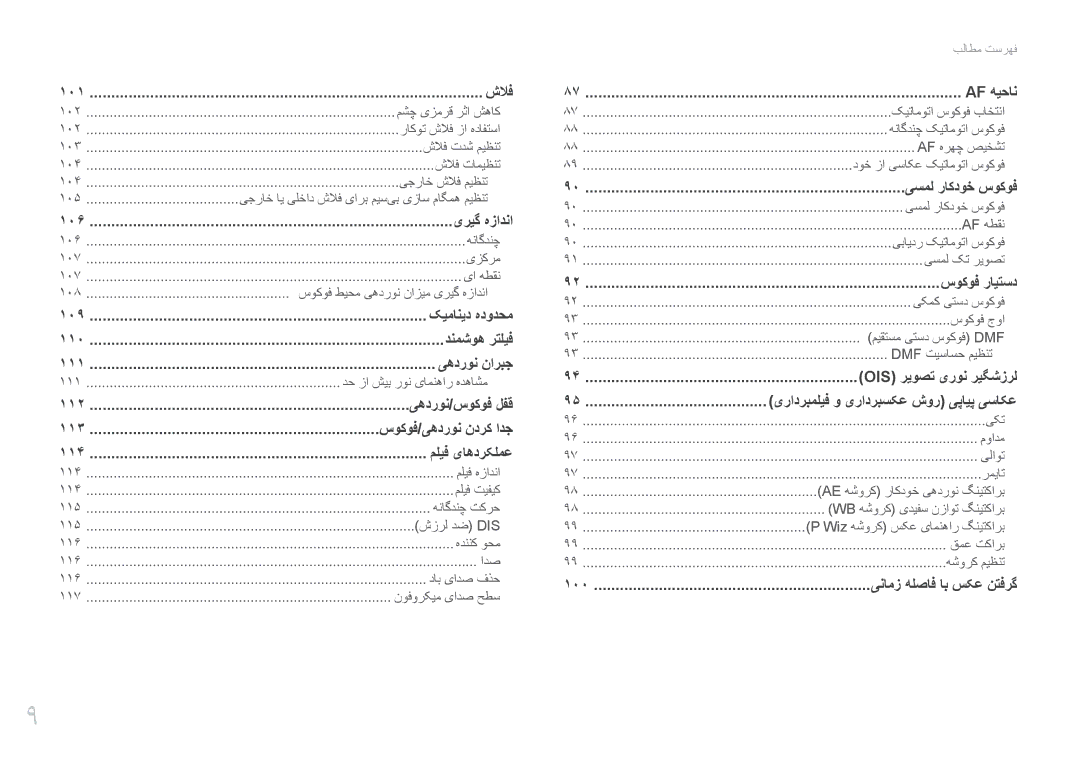 فهرست مطالب
ناحیه AF ........ ۸۷
انتخاب فوکوس اتوماتیک ........ ۸۷
فوکوس اتوماتیک چندگانه ........ ۸۸
تشخیص چهره AF ........ ۸۸
فوکوس اتوماتیک عکاسی از خود ........ ۸۹
فوکوس خودکار لمسی ........ ۹۰
فوکوس خودکار لمسی ........ ۹۰
نقطه AF ........ ۹۰
فوکوس اتوماتیک ردیابی ........ ۹۰
تصویر تک لمسی ........ ۹۱
دستیار فوکوس ........ ۹۲
فوکوس دستی کمکی ........ ۹۲
اوج فوکوس ........ ۹۳
DMF (فوکوس دستی مستقیم) ........ ۹۳
تنظیم حساسیت DMF ........ ۹۳
لرزشگیر نوری تصویر (OIS) ........ ۹۴
عکاسی پیاپی (روش عکسبرداری و فیلمبرداری) ........ ۹۵
تکی ........ ۹۶
مداوم ........ ۹۶
توالی ........ ۹۷
تایمر ........ ۹۷
براکتینگ نوردهی خودکار (کروشه AE) ........ ۹۸
براکتینگ توازن سفیدی (کروشه WB) ........ ۹۸
براکتینگ راهنمای عکس (کروشه P Wiz) ........ ۹۹
براکت عمق ........ ۹۹
تنظیم کروشه ........ ۹۹
گرفتن عکس با فاصله زمانی ........ ۱۰۰
فلاش ........ ۱۰۱
کاهش اثر قرمزی چشم ........ ۱۰۲
استفاده از فلاش توکار ........ ۱۰۲
تنظیم شدت فلاش ........ ۱۰۳
تنظیمات فلاش ........ ۱۰۴
تنظیم فلاش خارجی ........ ۱۰۴
تنظیم همگام سازی بی‌سیم برای فلاش داخلی یا خارجی ........ ۱۰۵
اندازه گیری ........ ۱۰۶
چندگانه ........ ۱۰۶
مرکزی ........ ۱۰۷
نقطه ای ........ ۱۰۷
اندازه گیری میزان نوردهی محیط فوکوس ........ ۱۰۸
محدوده دینامیک ........ ۱۰۹
فیلتر هوشمند ........ ۱۱۰
جبران نوردهی ........ ۱۱۱
مشاهده راهنمای نور بیش از حد ........ ۱۱۱
قفل فوکوس/نوردهی ........ ۱۱۲
جدا کردن نوردهی/فوکوس ........ ۱۱۳
عملکردهای فیلم ........ ۱۱۴
اندازه فیلم ........ ۱۱۴
کیفیت فیلم ........ ۱۱۴
حرکت چندگانه ........ ۱۱۵
DIS (ضد لرزش) ........ ۱۱۵
محو کننده ........ ۱۱۶
صدا ........ ۱۱۶
حذف صدای باد ........ ۱۱۶
سطح صدای میکروفون ........ ۱۱۷
۹